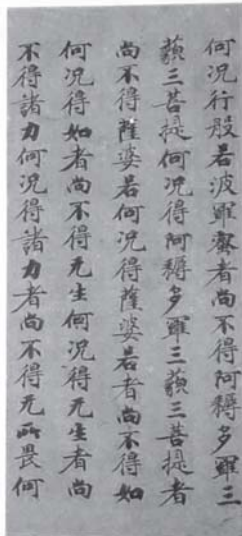 何况行般若波羅蜜者尚不得阿耨多羅三
藐三菩提何况得阿耨多羅三藐三菩提者
尚不得薩婆若何况得薩婆若者尚不得如
何况得如者尚不得无生何况得无生者尚
不得諸力何况得諸力者尚不得无所畏何